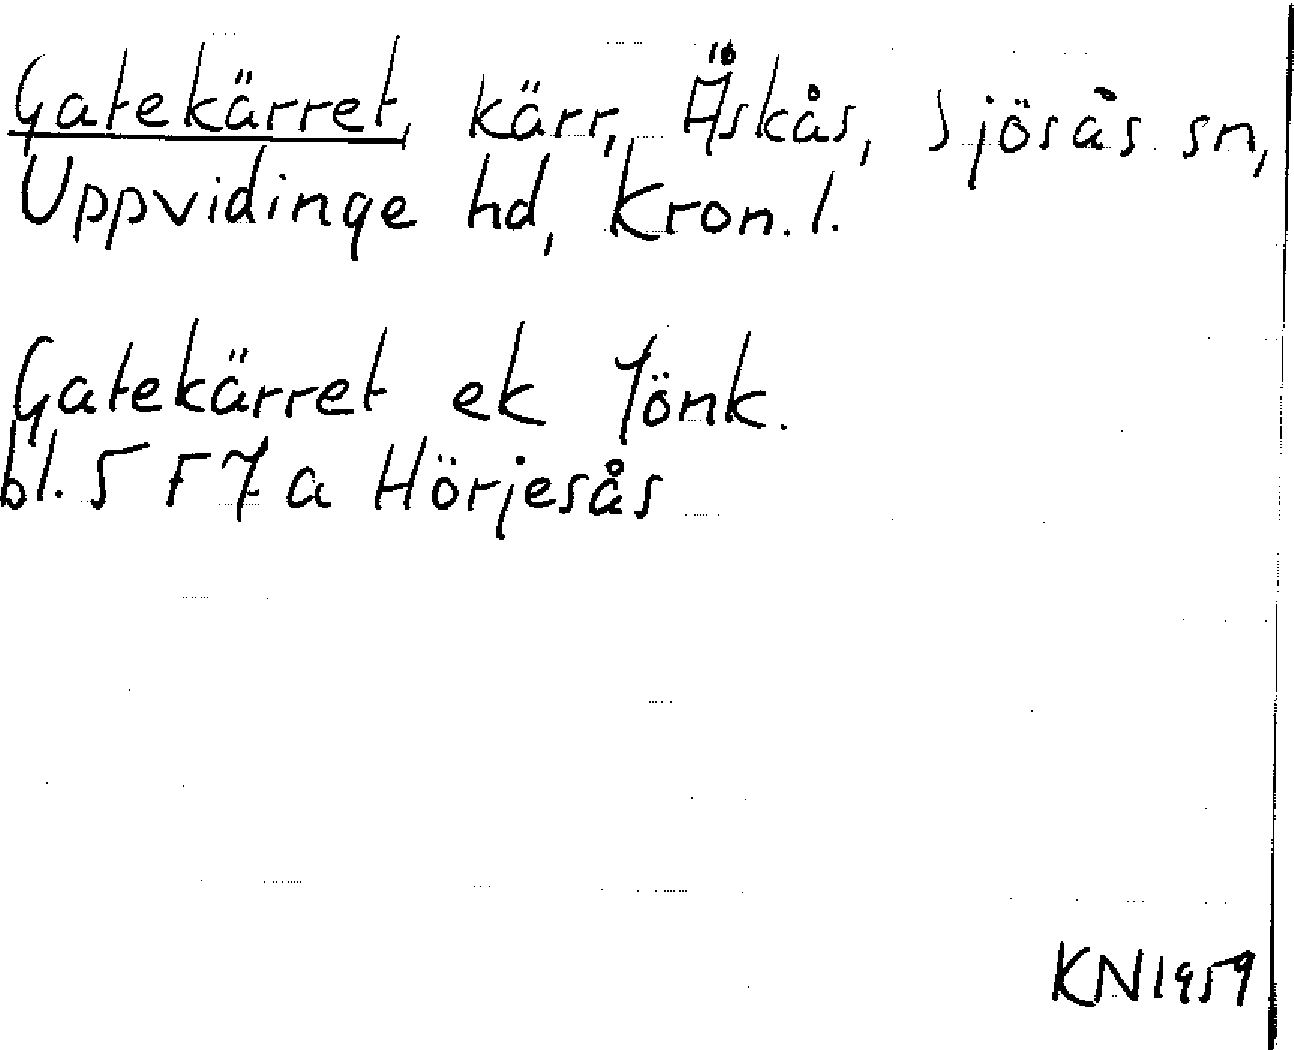 Gatekärret, kärr, Äskås, Sjösås sn,
Uppvidinge hd, Kron. l.
Gatekärret ek Jönk.
bl. 5 F 7 a Hörjesås
KN 1959